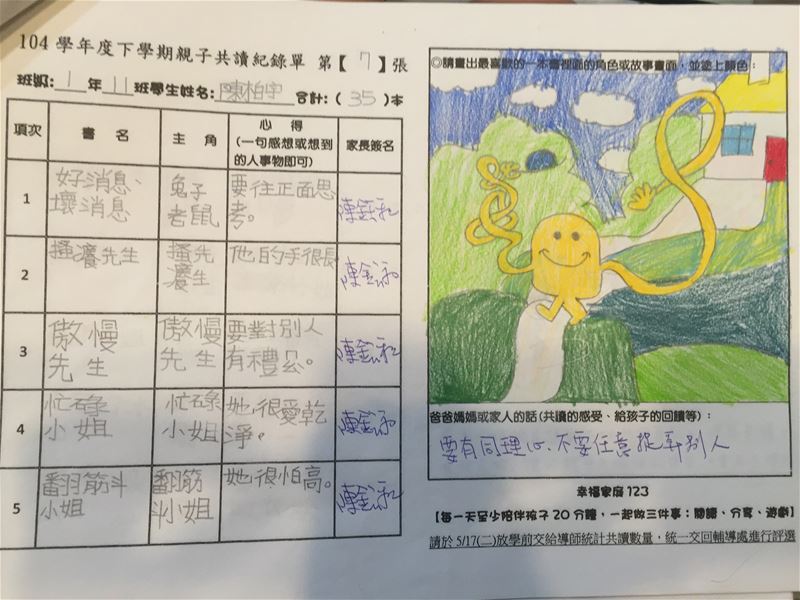 104 學年度下學期親子共讀紀錄單 第【 7 】張
班級: 1 年 11 班學生姓名: 陳柏宇 合計:( 35 )本
項次 書 名 主 角 心 得 家長簽名
(一句感想或想到
的人事物即可)
1 好消息、 兔子 要往正面思
壞消息 老鼠 考。
2 搔癢先生 搔先 他的手很長
癢生
3 傲慢 傲慢 要對別人
先生 先生 有禮貌。
4 忙碌 忙碌 她很愛乾
小姐 小姐 淨。
5 翻筋斗 翻筋 她很怕高。
小姐 斗小姐
◎請畫出最喜歡的一本書裡面的角色或故事畫面,並塗上顏色:
爸爸媽媽或家人的話(共讀的感受、給孩子的回饋等):
要有同理心、不要任意捉弄別人
幸福家庭 123
【每一天至少陪伴孩子 20 分鐘,一起做三件事:閱讀、分享、遊戲】
請於 5/17(二)放學前交給導師統計共讀數量,統一交回輔導處進行評選